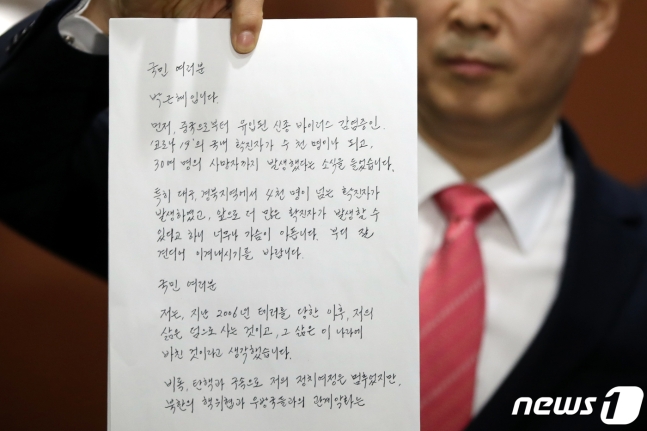 국민 여러분
박근혜입니다
먼저, 중국으로부터 유입된 신종 바이러스 감염증인.
'코로나 19'의 국내 확진자가 수 천 명이나 되고,
30여 명의 사망자까지 발생했다는 소식을 들었습니다.
특히 대구, 경북지역에서 4천 명이 넘는 확진자가
발생하였고, 앞으로 더 많은 확진자가 발생할 수
있다고 하니 너무나 가슴이 아픕니다. 부디 잘
견디어 이겨내시기를 바랍니다.
국민 여러분
저는, 지난 2006년 테러를 당한 이후, 저의
삶은 덤으로 사는 것이고, 그 삶은 이 나라에
바친 것이라고 생각했습니다.
비록, 탄핵과 구속으로 저의 정치여정은 멈추었지만,
북한의 핵위협과 우방국들과의 관계악화는
news1